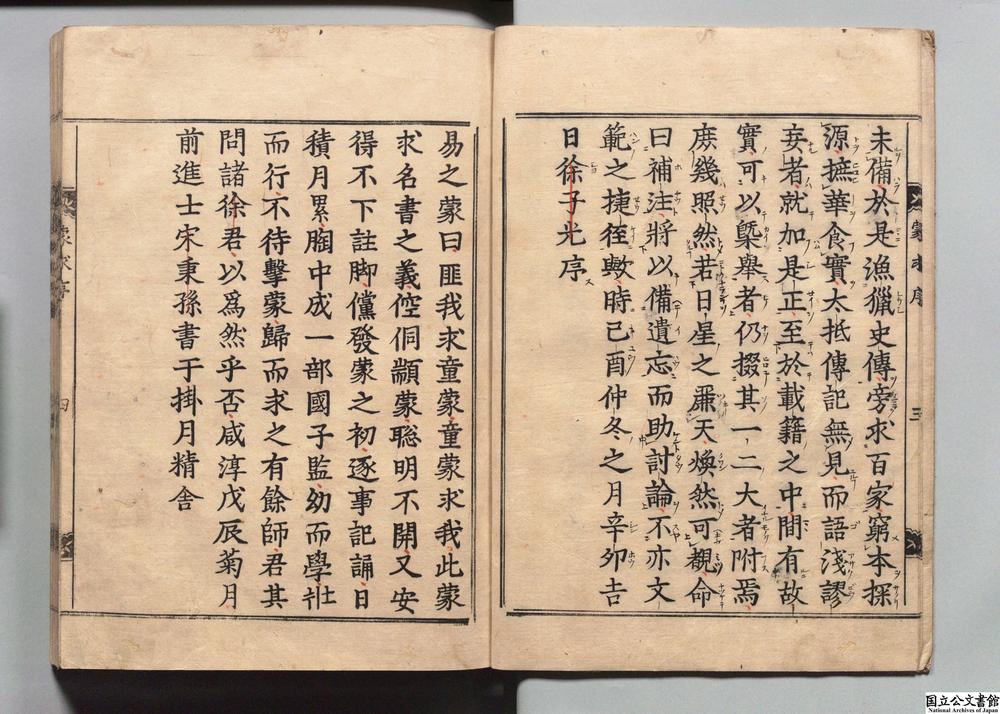 未備於是漁獵史傳旁求百家窮本探
源摭華食實大抵傳記無見而語淺謬
妄者就加是正至於載籍之中間有故
實可以槩舉者仍掇其一二大者附焉
庶幾照然若日星之麗天煥然可觀命
曰補注將以備遺忘而助討論不亦文
範之捷徑歟時己酉仲冬之月辛卯吉
日徐子光序
蒙求序
三
易之蒙曰匪我求童蒙童蒙求我此蒙
求名書之義倥侗顓蒙聡明不開又安
得不下註脚儻發蒙之初逐事記誦日
積月累胸中成一部國子監幼而學壯
而行不待擊蒙歸而求之有餘師君其
問諸徐君以爲然乎否咸淳戊辰菊月
前進士宋秉孫書于掛月精舎
蒙求序
四
国立公文書館
National Archives of Japan